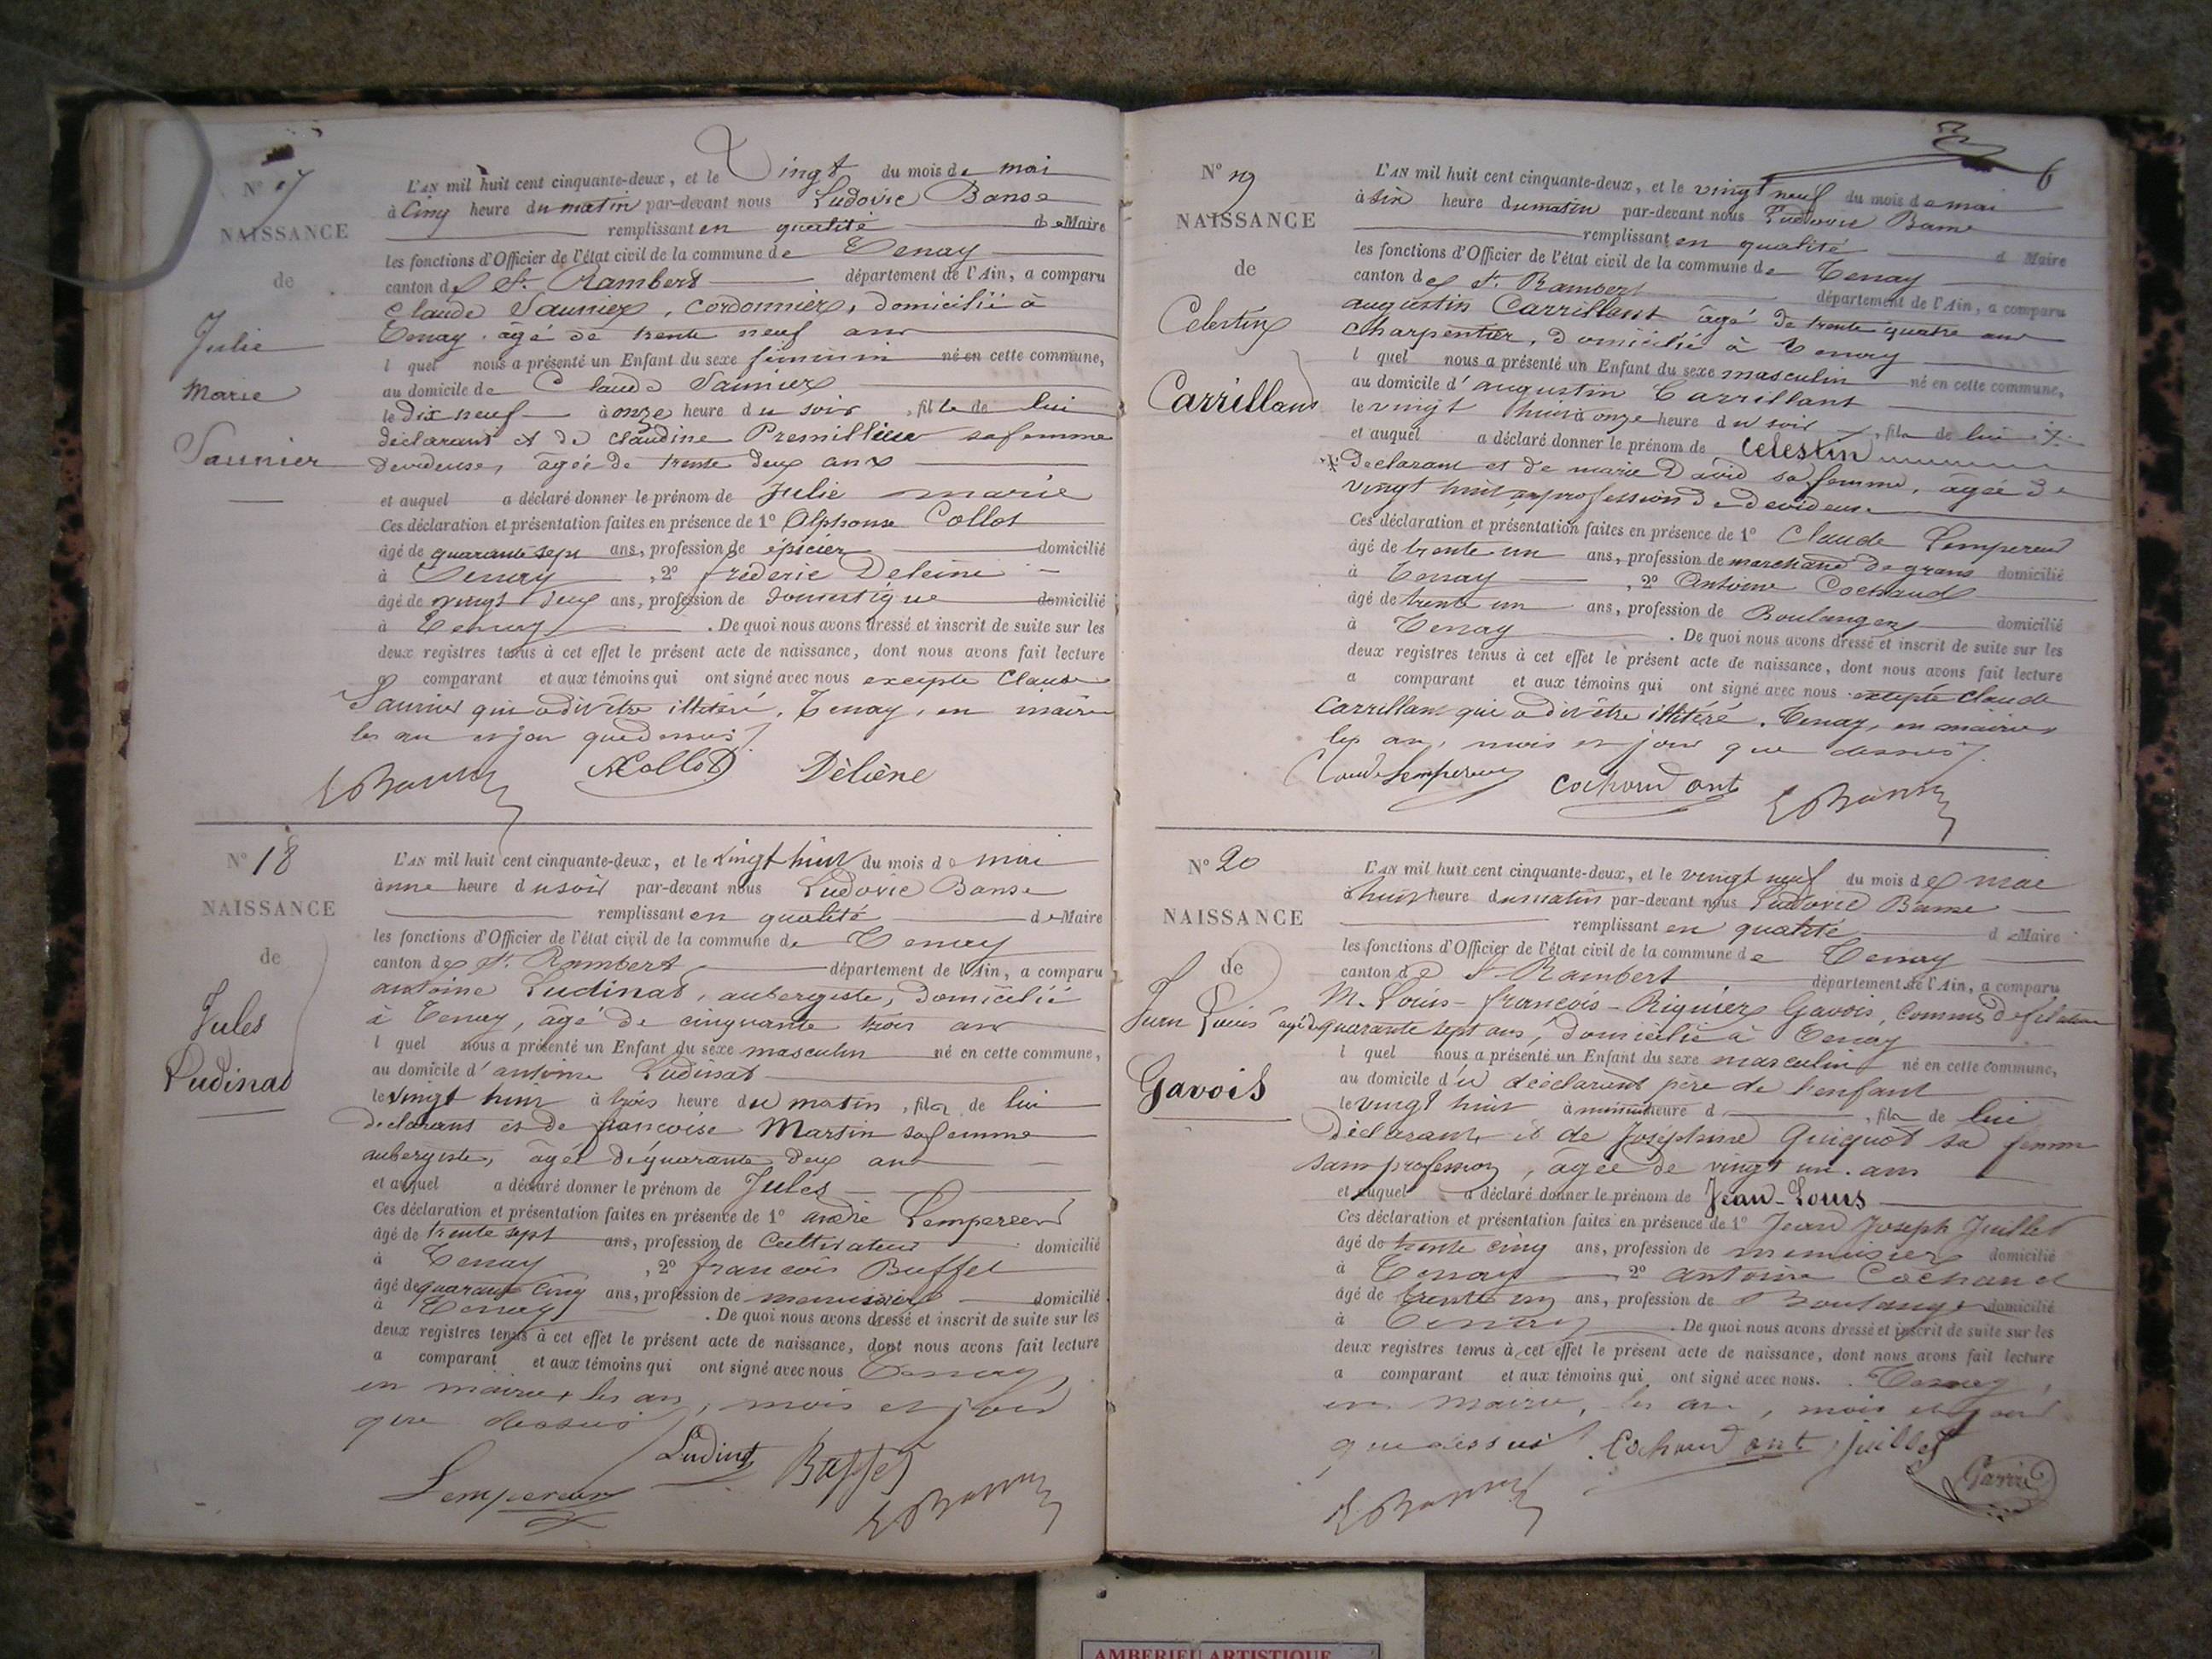 N° 17
NAISSANCE
de
Julie
Marie
Saunier
L'AN mil huit cent cinquante-deux, et le Vingt du mois de mai
à Cinq heure du matin par-devant nous Ludovic Banse
remplissant en qualité de Maire
les fonctions d'Officier de l'état civil de la commune de Tenay
canton de St. Rambert département de l'Ain, a comparu
Claude Saunier, cordonnier, domicilié à
Tenay âgé de trente neuf ans
l quel nous a présenté un Enfant du sexe féminin né en cette commune,
au domicile de Claude Saunier
le dix neuf à onze heure du soir, fille de lui
déclarant et de Claudine Premillieu sa femme
devideuse, âgée de trente deux ans
et auquel a déclaré donner le prénom de Julie marie
Ces déclaration et présentation faites en présence de 1° Alphonse Collot
âgé de quarante sept ans, profession de épicier domicilié
à Tenay, 2° frédéric Deleine
âgé de vingt deux ans, profession de domestique domicilié
à Tenay. De quoi nous avons dressé et inscrit de suite sur les
deux registres tenus à cet effet le présent acte de naissance, dont nous avons fait lecture
a comparant et aux témoins qui ont signé avec nous excepté Claude
Saunier qui a dit être illitéré. Tenay, en mairie
les an et jour que dessus
LBanse ACollot Délène
N° 18
NAISSANCE
de
Jules
Ludinat
L'AN mil huit cent cinquante-deux, et le Vingt huit du mois de mai
à une heure du soir par-devant nous Ludovic Banse
remplissant en qualité de Maire
les fonctions d'Officier de l'état civil de la commune de Tenay
canton de St. Rambert département de l'Ain, a comparu
antoine Ludinat, aubergiste, domicilié
à Tenay, âgé de cinquante trois ans
l quel nous a présenté un Enfant du sexe masculin né en cette commune,
au domicile d'antoine Ludinat
le vingt huit à trois heure du matin, fils de lui
declarant et de françoise Martin sa femme
aubergiste, âgée de quarante deux ans
et auquel a déclaré donner le prénom de Jules
Ces déclaration et présentation faites en présence de 1° andré Lempereur
âgé de trente sept ans, profession de Cultivateur domicilié
à Tenay, 2° françois Buffet
âgé de quarante Cinq ans, profession de menuisier domicilié
à Tenay. De quoi nous avons dressé et inscrit de suite sur les
deux registres tenus à cet effet le présent acte de naissance, dont nous avons fait lecture
a comparant et aux témoins qui ont signé avec nous Tenay,
en mairie les an, mois et jour
que dessus
Ludinat Buffet
Lempereur LBanse
6
N° 19
NAISSANCE
de
Celestin
Carrillant
L'AN mil huit cent cinquante-deux, et le vingt neuf du mois de mai
à six heure du matin par-devant nous Ludovic Banse
remplissant en qualité d Maire
les fonctions d'Officier de l'état civil de la commune de Tenay
canton de St. Rambert département de l'Ain, a comparu
augustin Carrillant âgé de trente quatre ans
Charpentier, domicilié à Tenay
l quel nous a présenté un Enfant du sexe masculin né en cette commune,
au domicile d'augustin Carrillant
le vingt huit à onze heure du soir, fils de lui X
et auquel a déclaré donner le prénom de Celestin
X declarant et de marie David sa femme, agée de
vingt huit ans profession de devideuse
Ces déclaration et présentation faites en présence de 1° Claude Lempereur
âgé de trente un ans, profession de marchand de grains domicilié
à Tenay, 2° Antoine Cochaud
âgé de trente un ans, profession de Boulanger domicilié
à Tenay. De quoi nous avons dressé et inscrit de suite sur les
deux registres tenus à cet effet le présent acte de naissance, dont nous avons fait lecture
a comparant et aux témoins qui ont signé avec nous excepté Claude
Carrillant qui a dit être illitéré. Tenay, en mairie
les an, mois et jour que dessus
Claude Lempereur Cohaud ant LBanse
N° 20
NAISSANCE
de
Jean Louis
Gavois
L'AN mil huit cent cinquante-deux, et le vingt neuf du mois de mai
à huit heure du matin par-devant nous Ludovic Banse
remplissant en qualité de Maire
les fonctions d'Officier de l'état civil de la commune de Tenay
canton de St Rambert département de l'Ain, a comparu
M. Louis-françois-Riquier Gavois, Commis de filature
âgé de quarante sept ans, domicilié à Tenay
l quel nous a présenté un Enfant du sexe masculin né en cette commune,
au domicile du déclarant père de l'enfant
le vingt huit à minuit heure d, fils de lui
Déclarant et de Joséphine Quiquot sa femme
sans profession, âgée de vingt un ans
et auquel a déclaré donner le prénom de Jean-Louis
Ces déclaration et présentation faites en présence de 1° Jean Joseph Juillet
âgé de trente cinq ans, profession de menuisier domicilié
à Tenay 2° antoine Cochaud
âgé de trente un ans, profession de Boulanger domicilié
à Tenay. De quoi nous avons dressé et inscrit de suite sur les
deux registres tenus à cet effet le présent acte de naissance, dont nous avons fait lecture
a comparant et aux témoins qui ont signé avec nous. Tenay,
en mairie, les an, mois et jour
que dessus Cohaud ant juillet
LBanse Gavois
AMBERIEU ARTISTIQUE